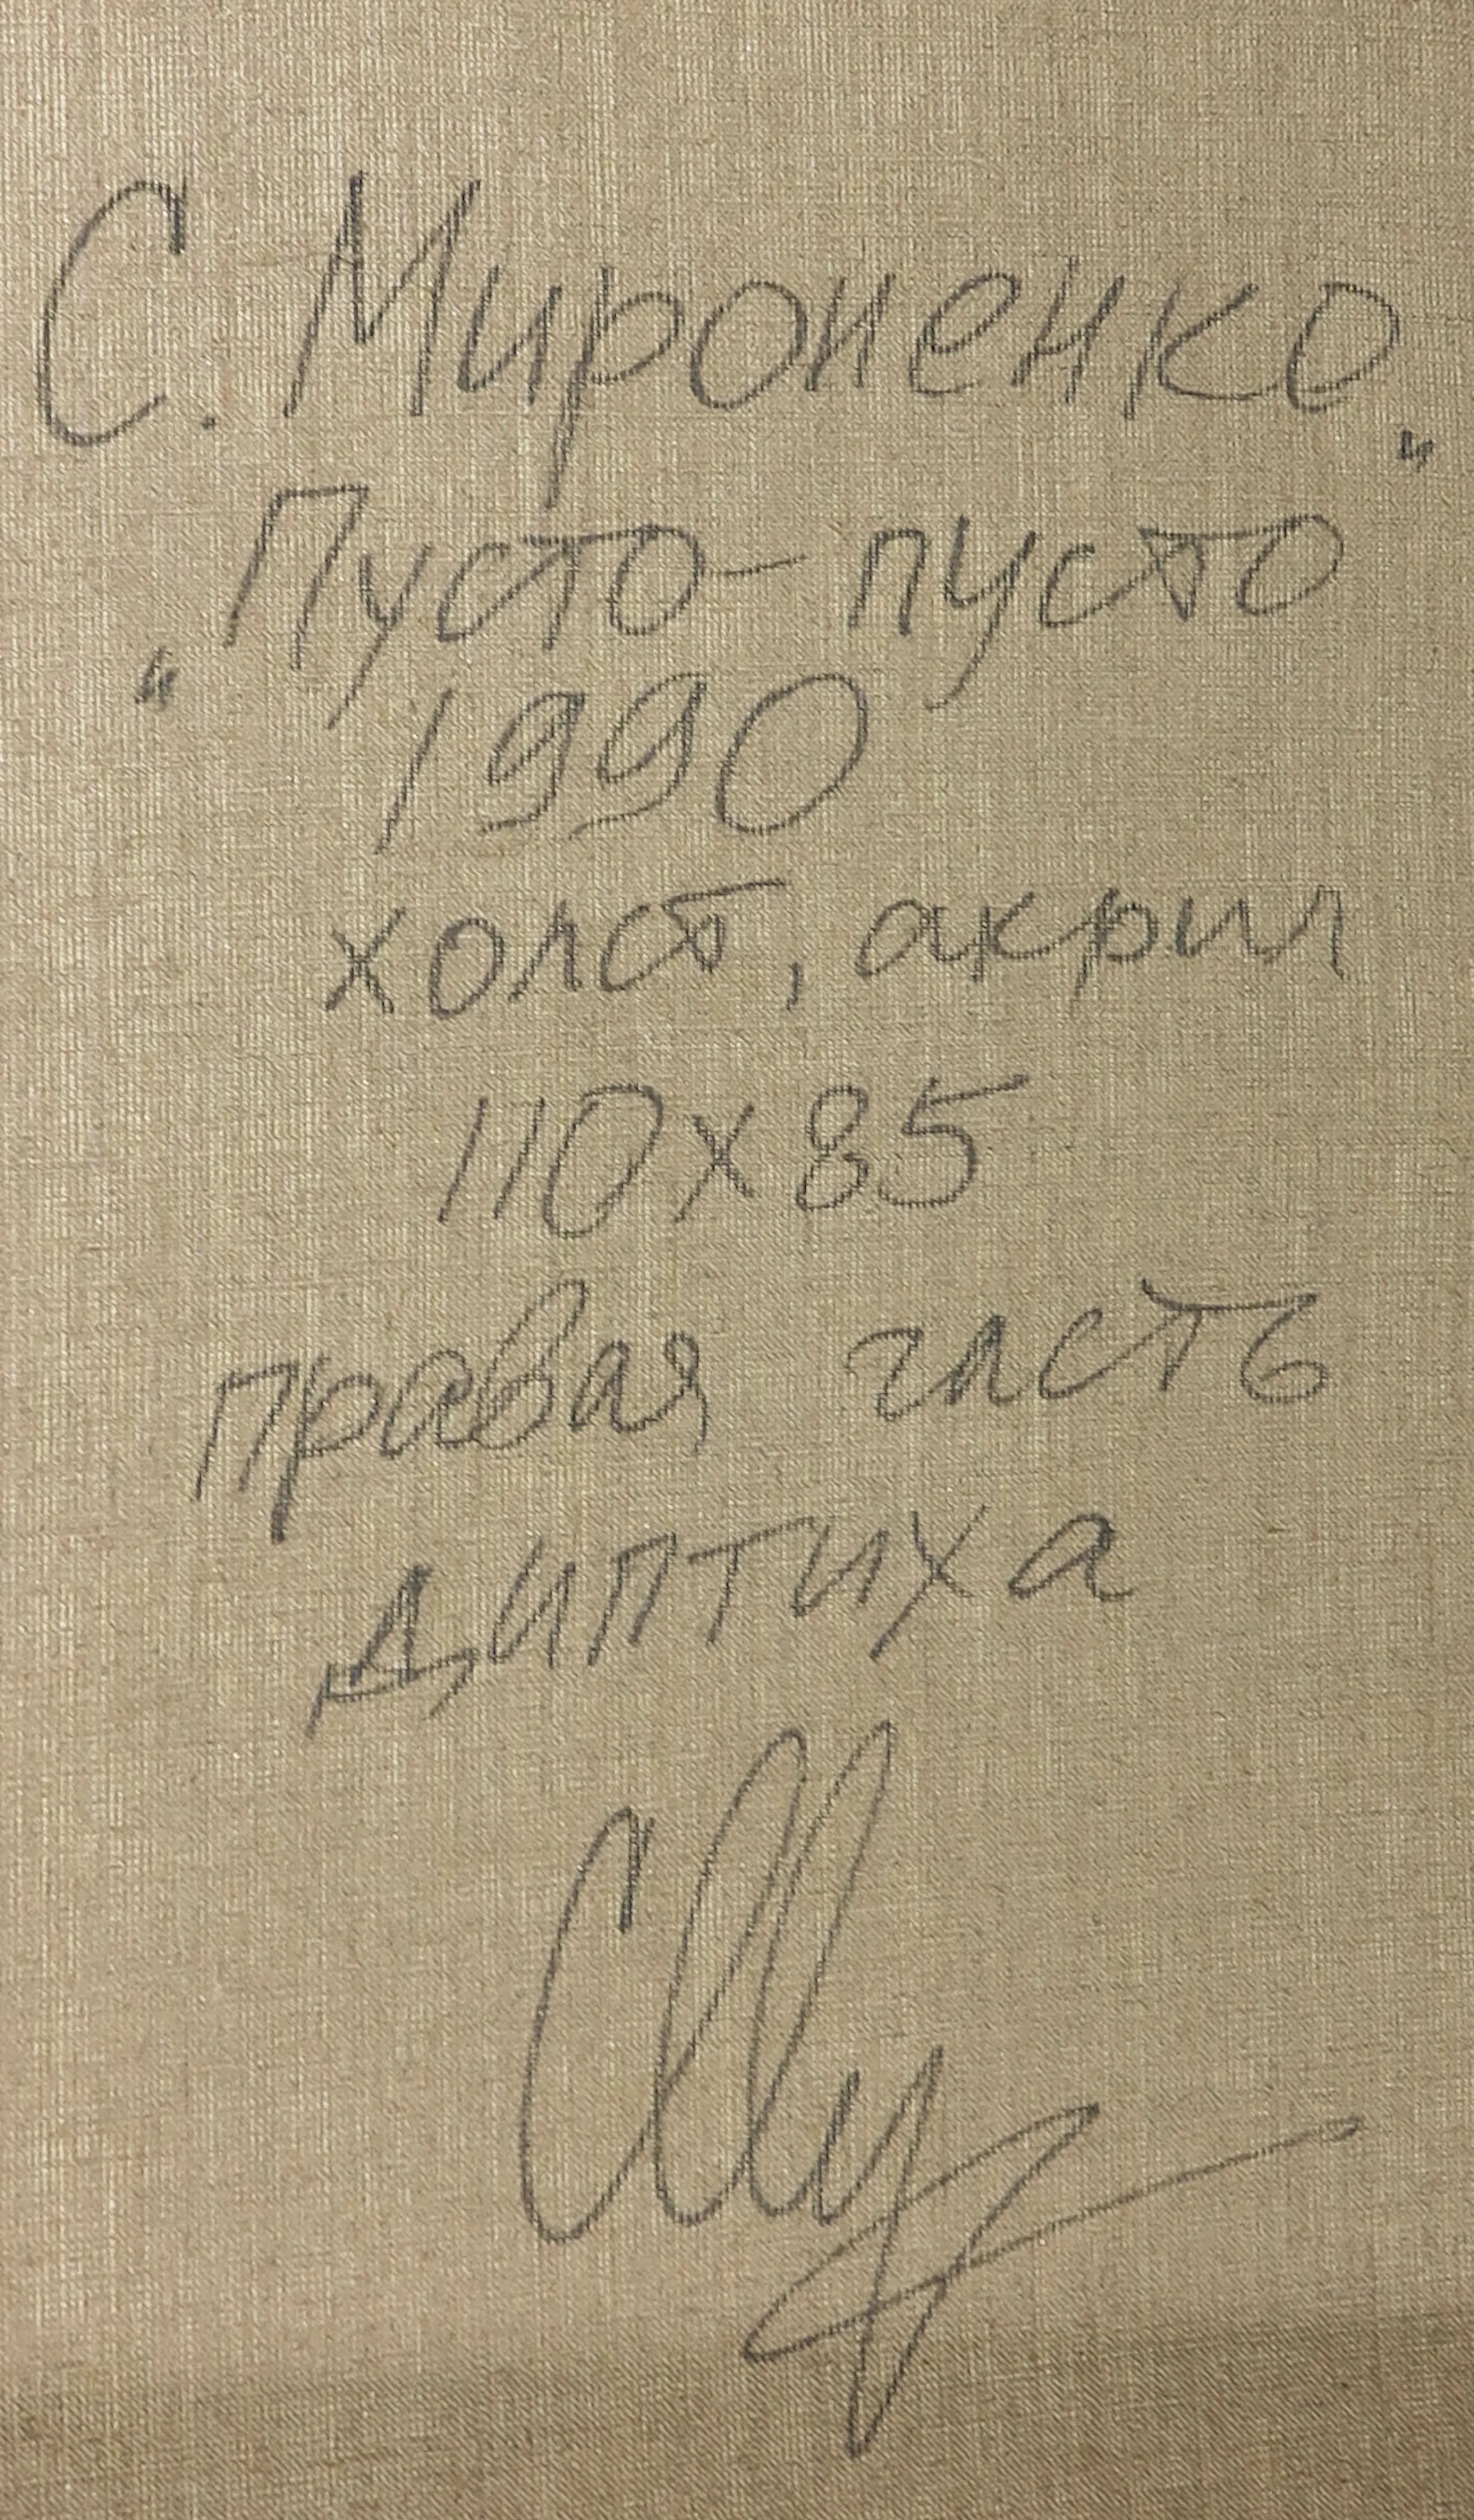 С. Мироненко
„Пусто - пусто"
1990
холст, акрил
110 x 85
правая часть
диптиха